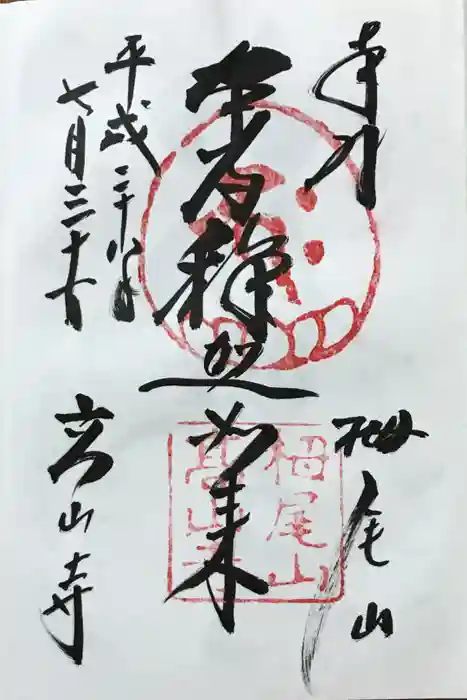 奉拝
栂尾山
釋迦如来
平成二十八年
七月三十日
高山寺
栂尾山
高山寺